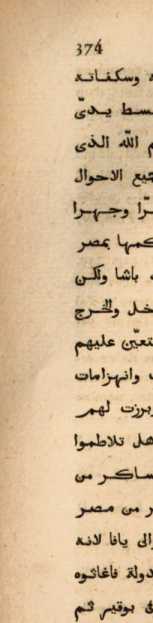 374
وسكفاته
بسط يدىّ
الله الذى
جميع الاحوال
سرّا وجهرا
حكمها بمصر
باشا ولكن
دخل والخرج
متعيّن عليهم
وانهزامات
وبرزت لهم
هل تلاطموا
عساكر من
من مصر
والى يافا لانه
دولة فاغاثوه
بوقير ثم